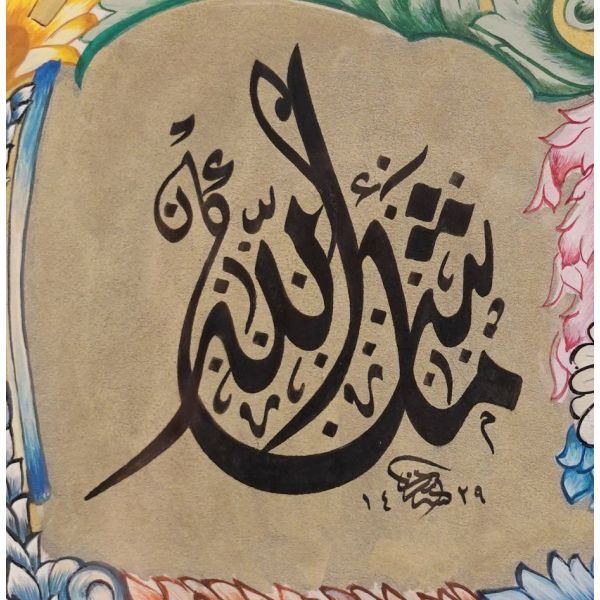 ما شاء الله كان
١٤٢٩